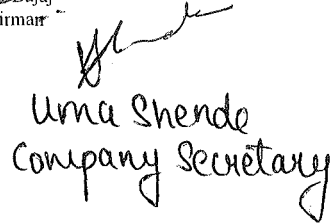 irman
Uma Shende
Company Secretary